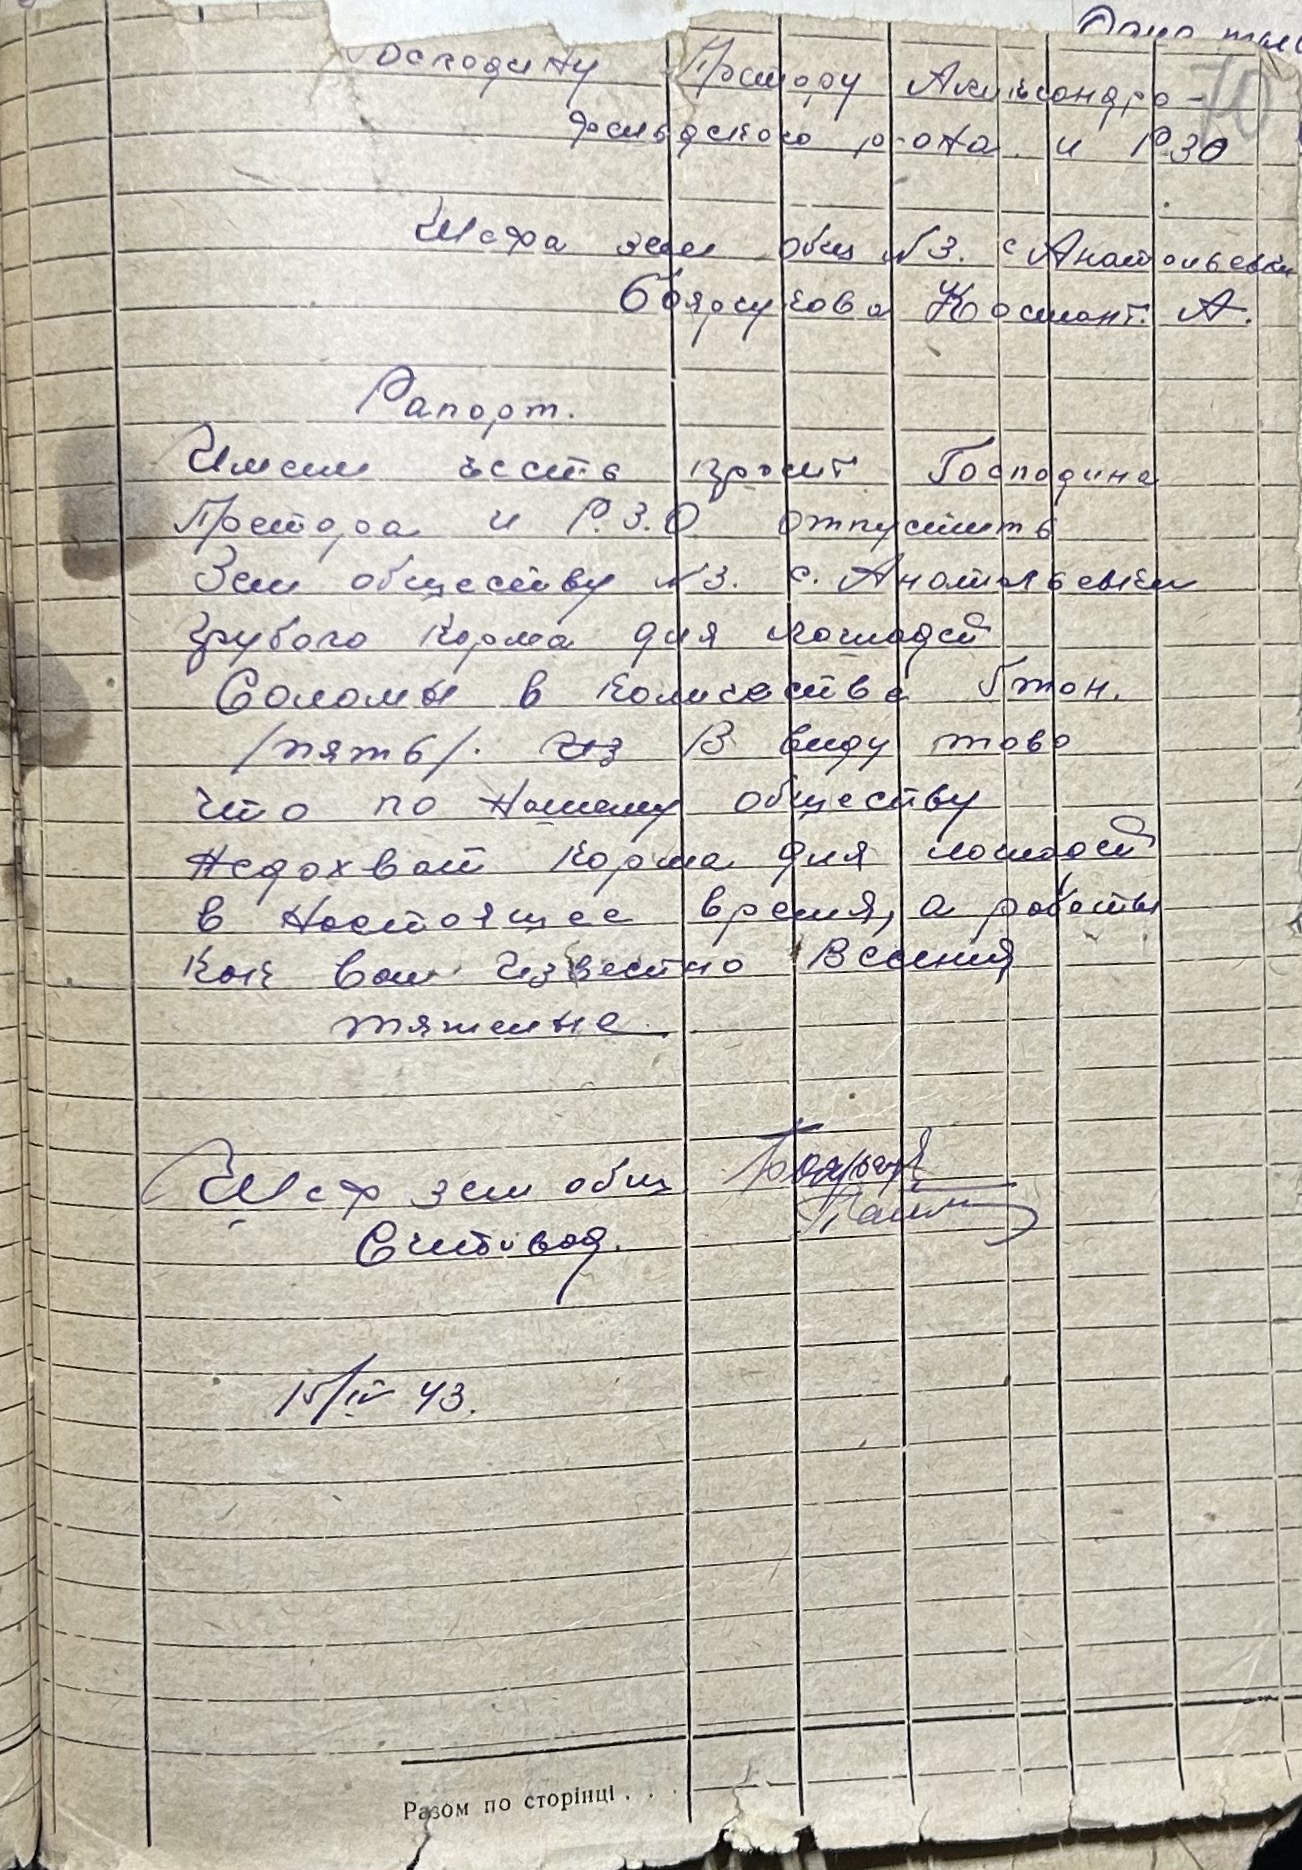 70
осподину Претору Александро-
фельдского р-она и РЗО
Шефа зем общ №3. с Анатольевки
Боярсукова Констант. А.
Рапорт.
Имеем честь просит Господина
Претора и Р.З.О отпустить
Зем обществу №3. с. Анатольевки
грубого корма для лошадей
Соломы в количестве 5 тон.
/пять/. из В виду тово
что по нашему обществу
недохват корма для лошадей
в настоящее время, а работы
как вам известно Весения
тяжелые.
Шеф зем общ
Счетовод.
15/IV 43.
Разом по сторінці . . .